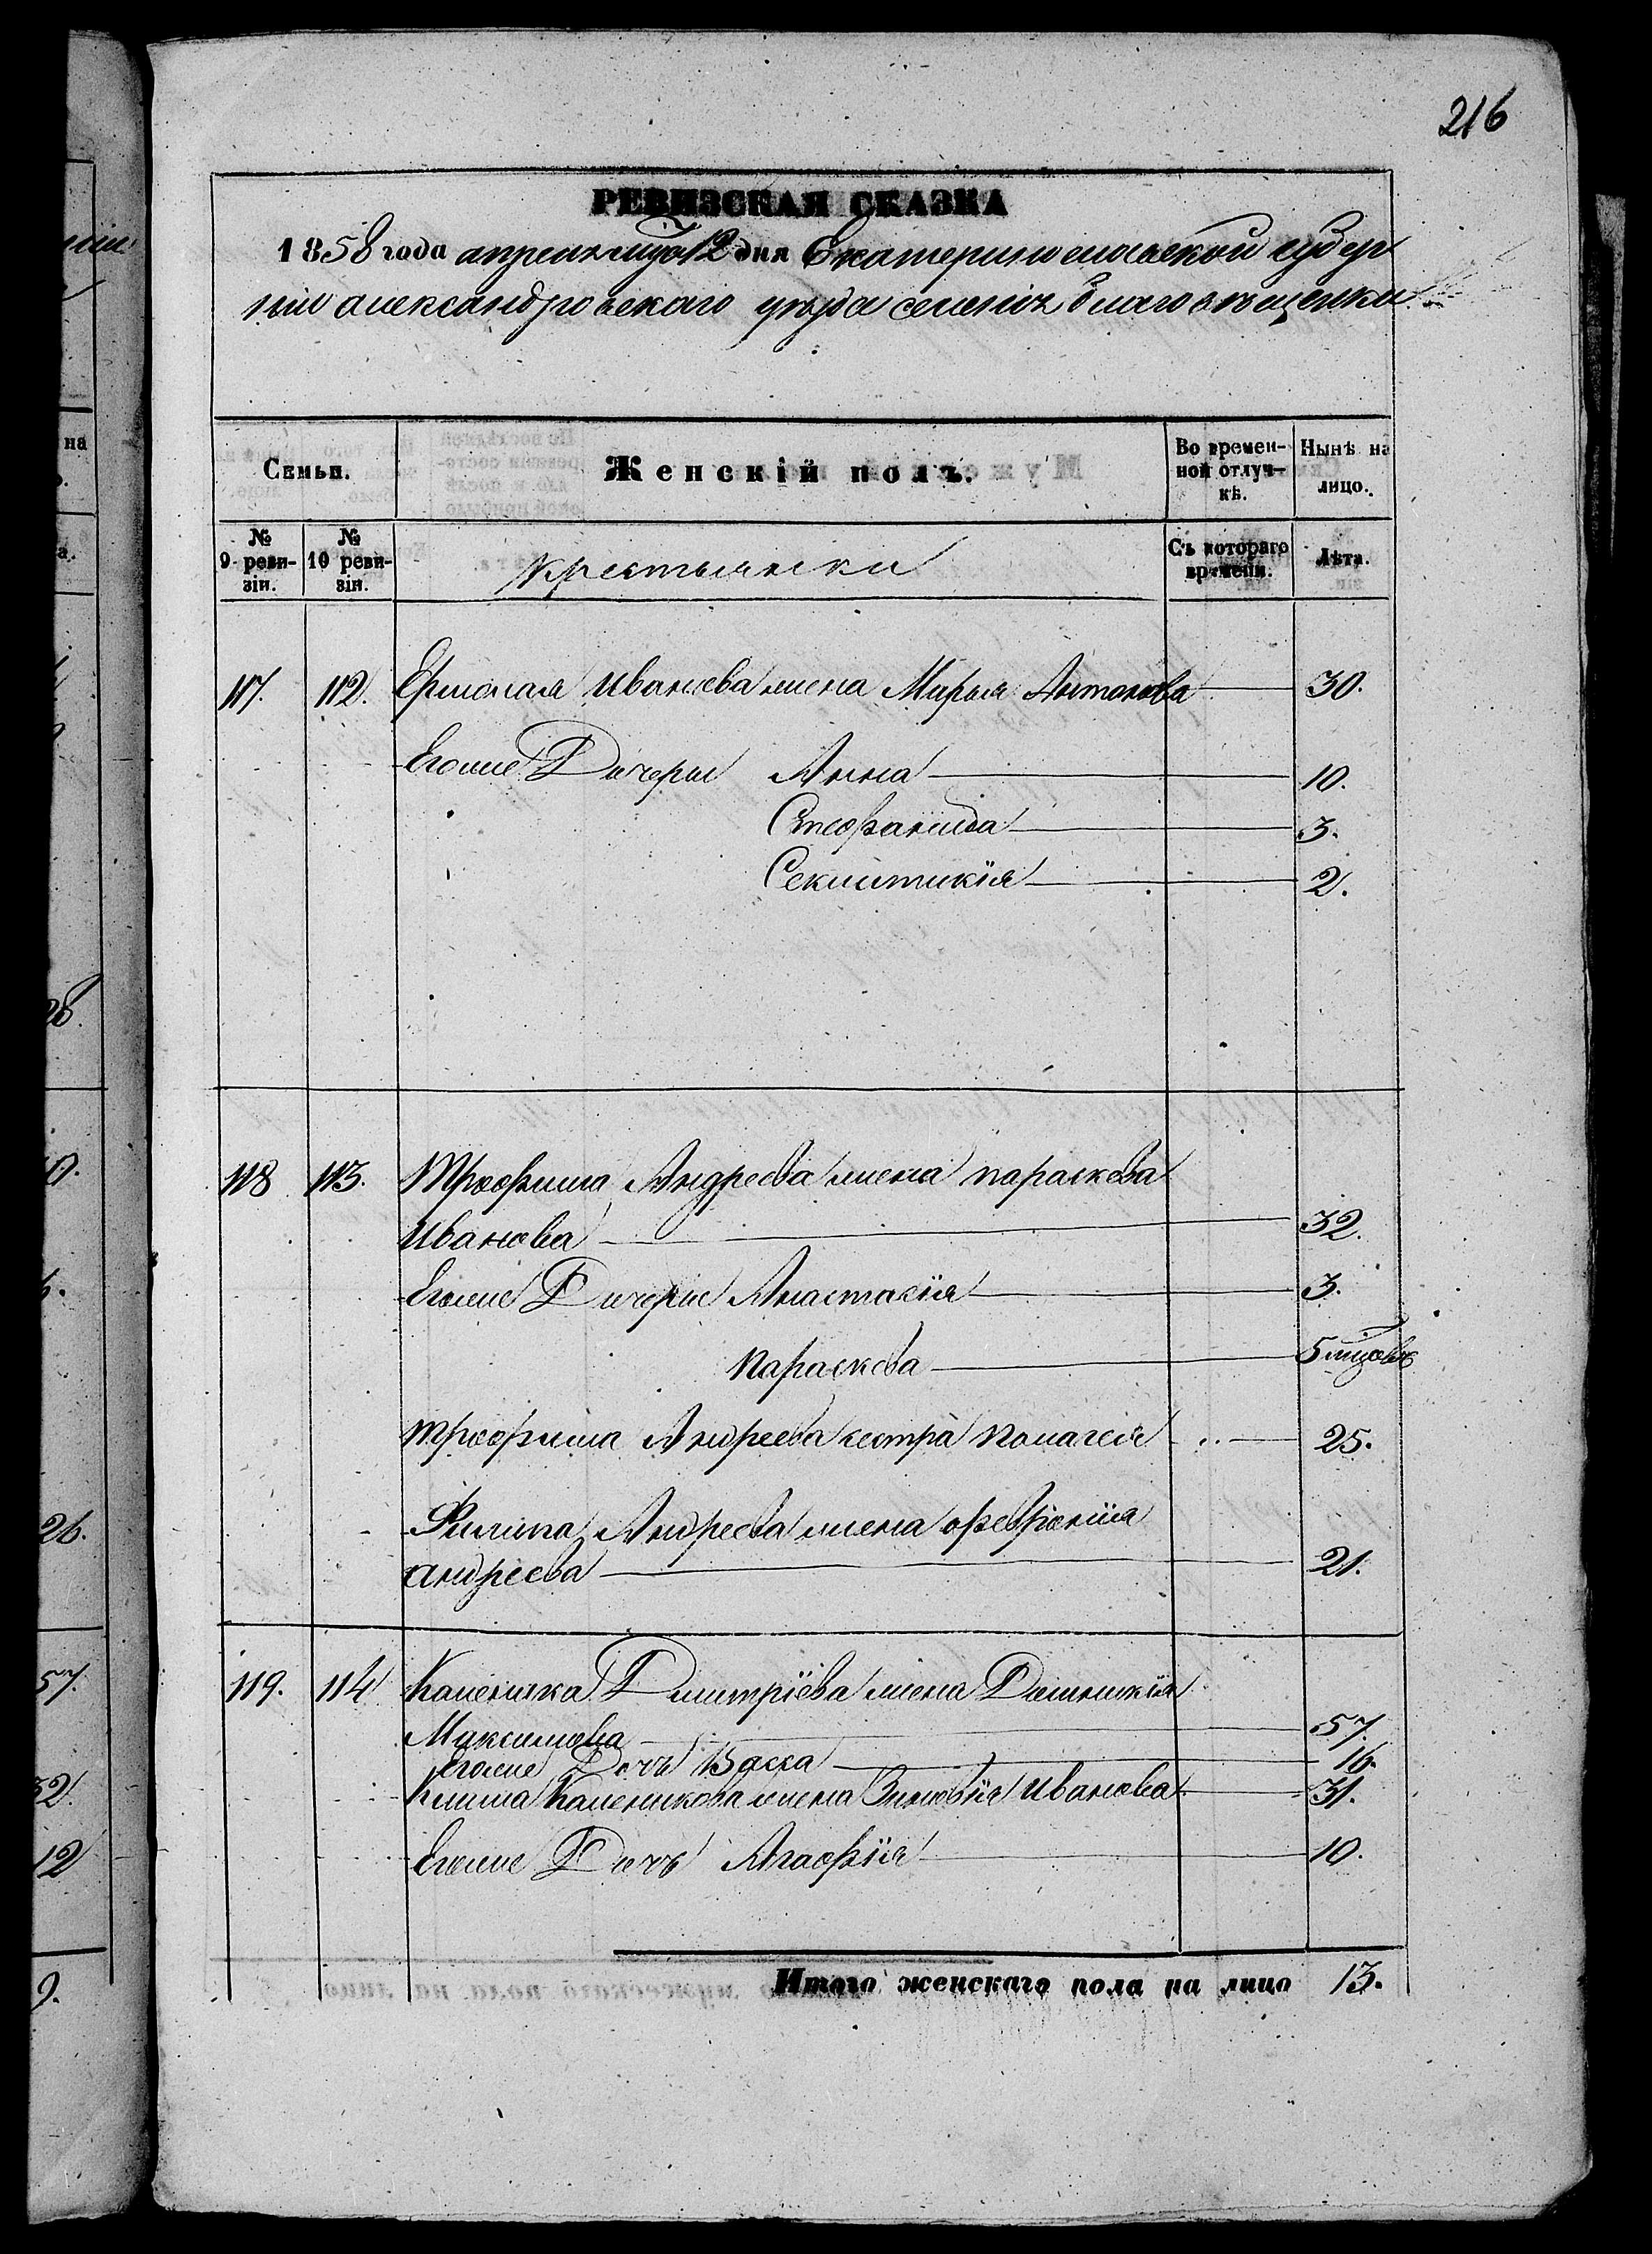 216
РЕВИЗСКАЯ СКАЗКА
1858 года апреля мца 12 дня Екатеринославской губер
нии александровскаго уѣзда селенія благовѣщенки
Семьи.
Женскій полъ.
Во времен-
ной отлуч-
кѣ.
Нынѣ на
лицо.
№
9 реви-
зіи.
№
10 реви-
зіи.
крестьянски
Съ котораго
времени.
Лѣта.
117. 112. Ермолая Иванова жена Марья Антонова 30.
Егоже Дочери Анна 10.
Стефанида 3.
Секлитикія 2.
118 113. Трофима Андреева жена параскева
Иванова 32.
Егоже Дочери Анастасія 3.
параскева 5 мцовъ
трофима Андреева сестра полагея 25.
Филипа Андреева жена февронія
андреева 21.
119. 114 Каленика Дмитріева жена Домникія
Максимова 57.
Егоже Дочь Васса 16.
Клима Каленикова жена Зиновія Иванова 31.
Егоже Дочь Агафія 10.
Итого женскаго пола на лицо 13.
26.
57.
32.
12
9.